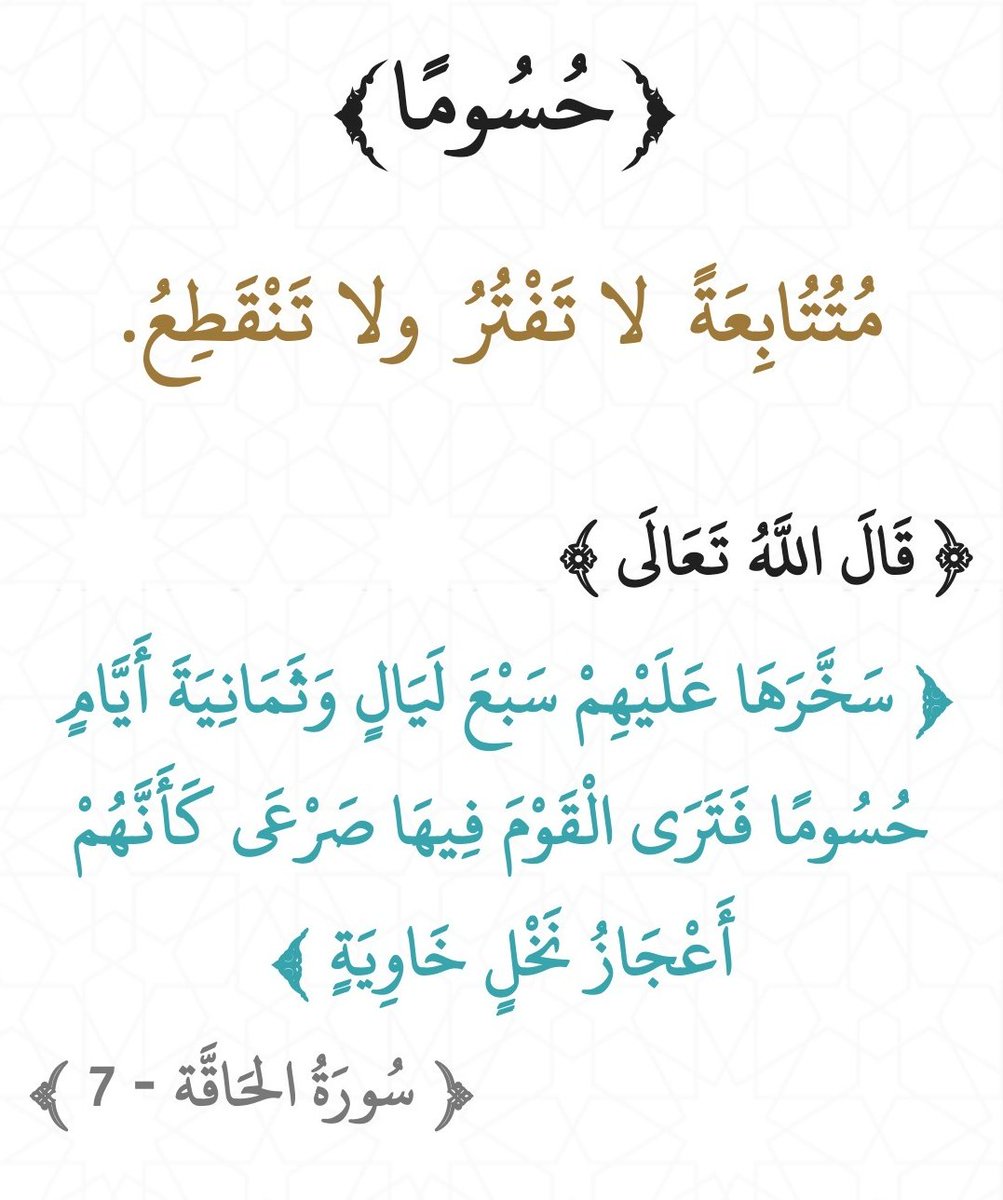 ﴿ حُسُومًا ﴾
مُتُتُابِعَةً لا تَفْتُرُ ولا تَنْقَطِعُ.
﴿ قَالَ اللَّهُ تَعَالَى ﴾
﴿ سَخَّرَهَا عَلَيْهِمْ سَبْعَ لَيَالٍ وَثَمَانِيَةَ أَيَّامٍ
حُسُومًا فَتَرَى الْقَوْمَ فِيهَا صَرْعَى كَأَنَّهُمْ
أَعْجَازُ نَخْلٍ خَاوِيَةٍ ﴾
﴿ سُورَةُ الحَاقَّة - 7 ﴾